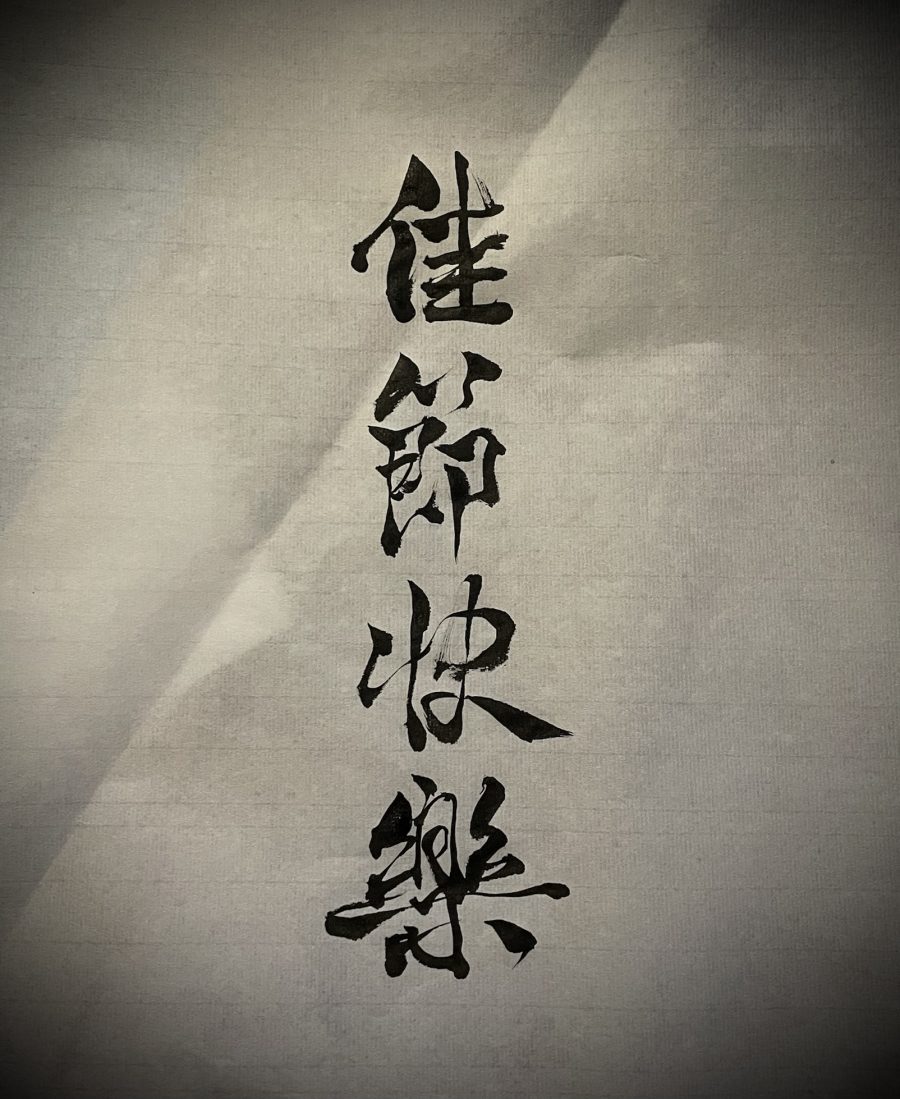 佳節快樂